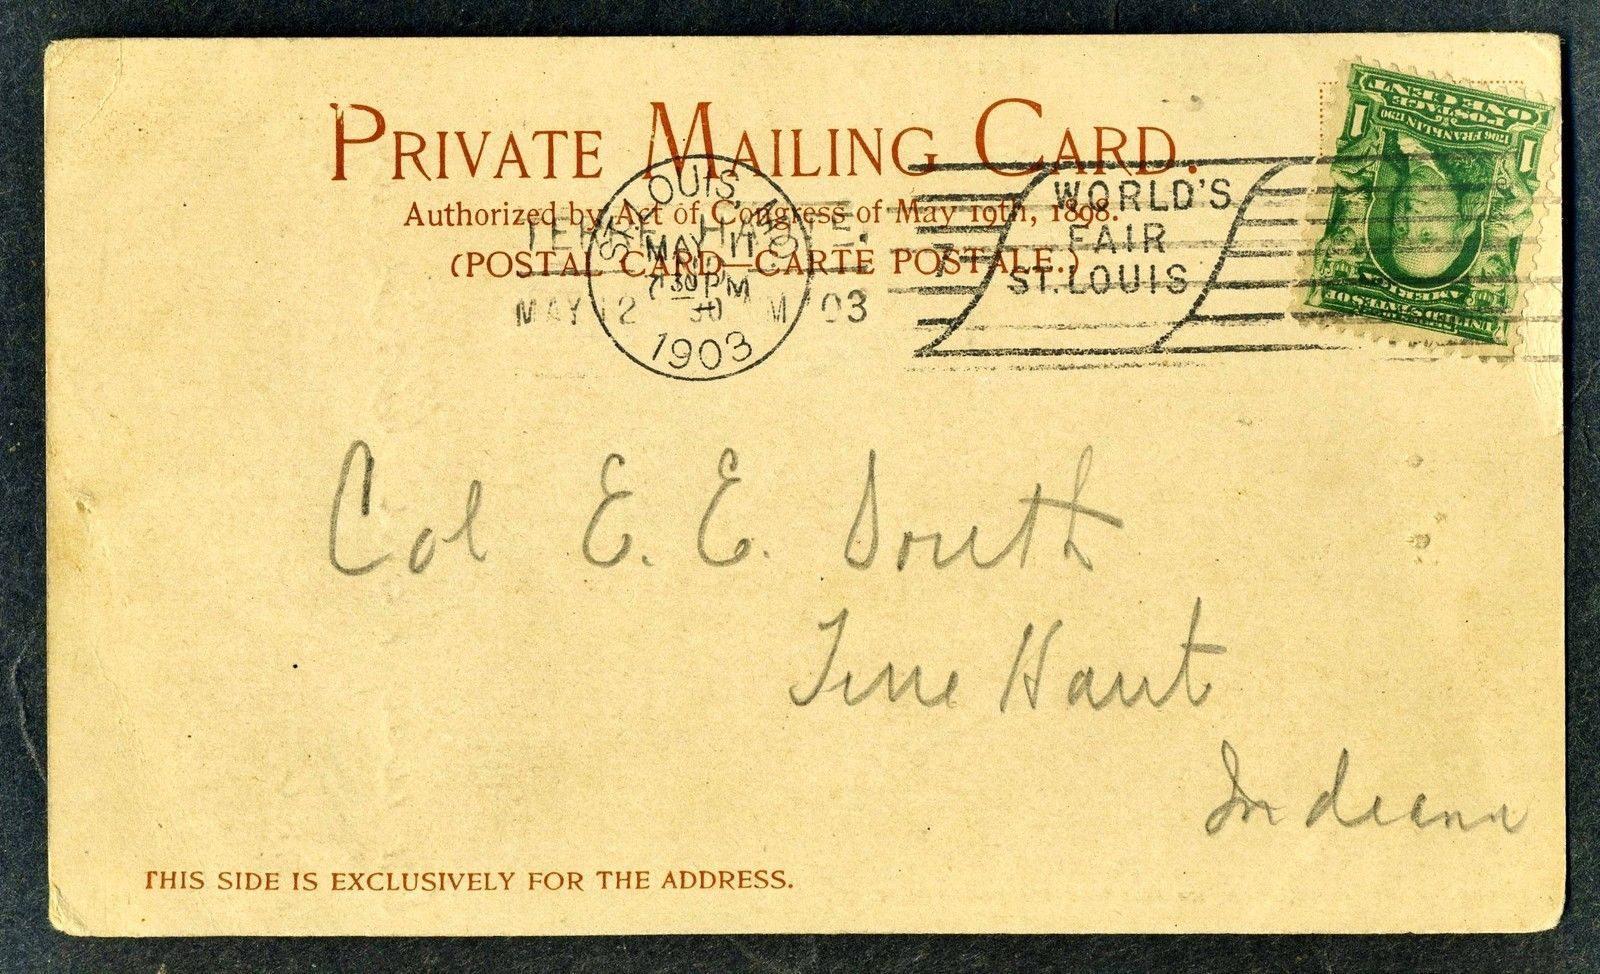 PRIVATE MAILING CARD.
Authorized by Act of Congress of May 19th, 1898.
(POSTAL CARD—CARTE POSTALE.)
ST. LOUIS, MO.
MAY 11
7 30 PM
1903
TERRE HAUTE,
MAY 12 30 M '03
WORLD'S
FAIR
ST. LOUIS
ONE CENT
POSTAGE
1706 FRANKLIN 1790
1 1
AMERICA
UNITED STATES OF
Col E. E. South
Terre Haut
Indiana
THIS SIDE IS EXCLUSIVELY FOR THE ADDRESS.